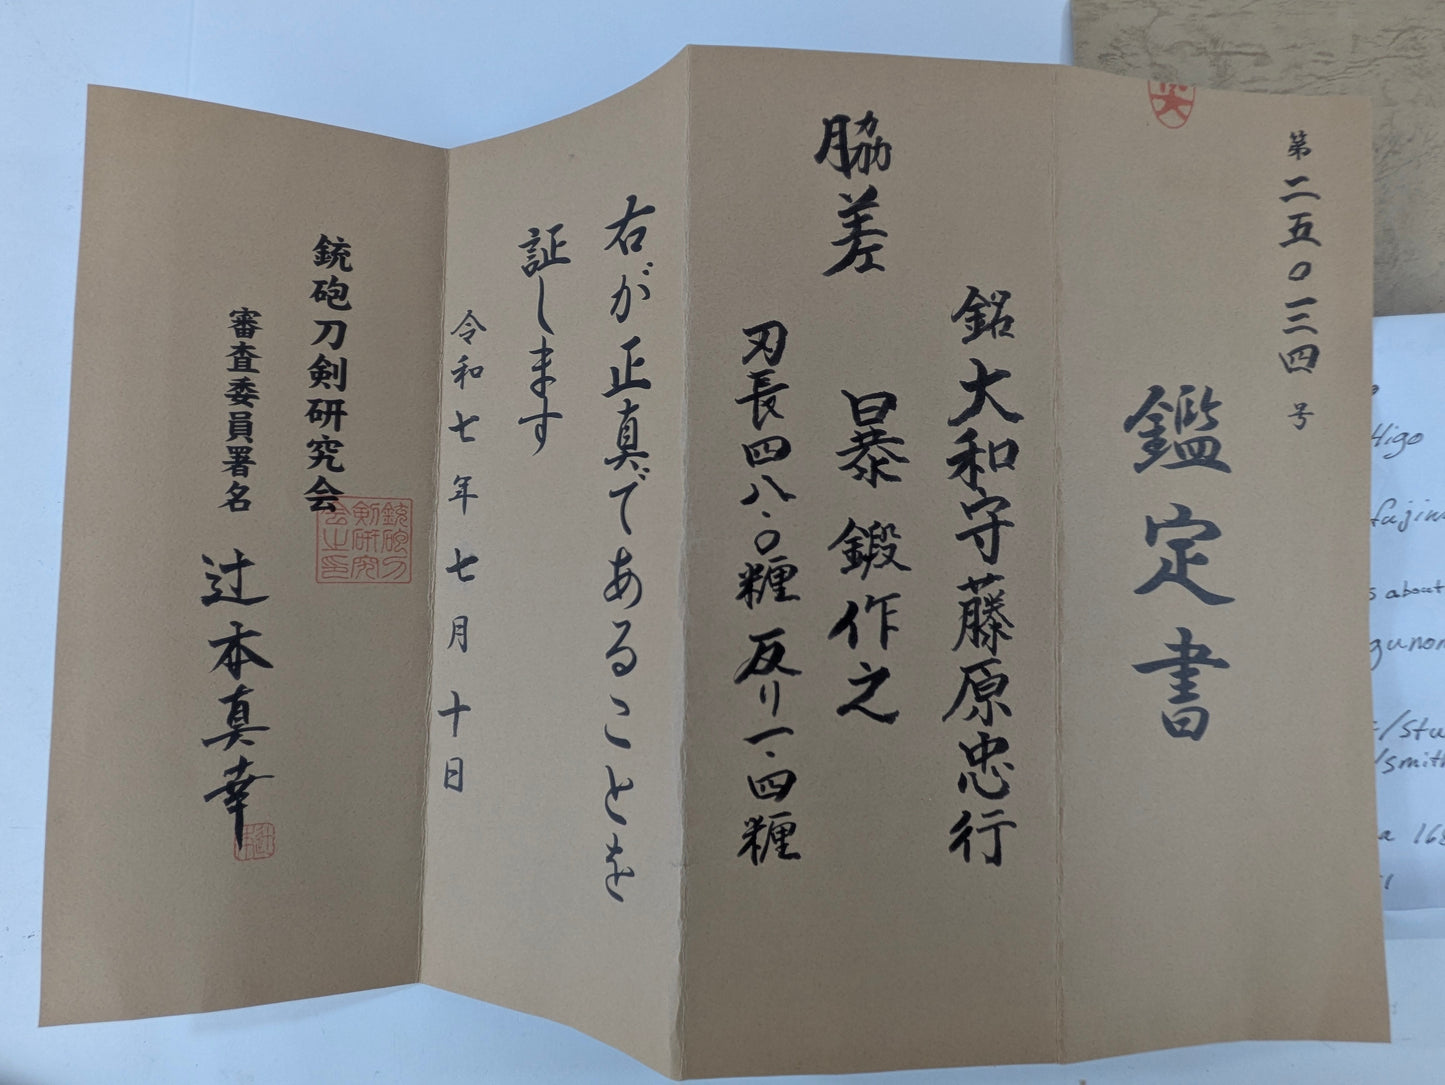 第二五〇一三四号
鑑定書
脇差
銘大和守藤原忠行
暴鍛作之
刃長四八.〇糎反リ一.四糎
右が正真であることを
証します
令和七年七月十日
銃砲刀剣研究会
審査委員署名 辻本真幸
銃砲刀
剣研究
会之印
Higo
s about